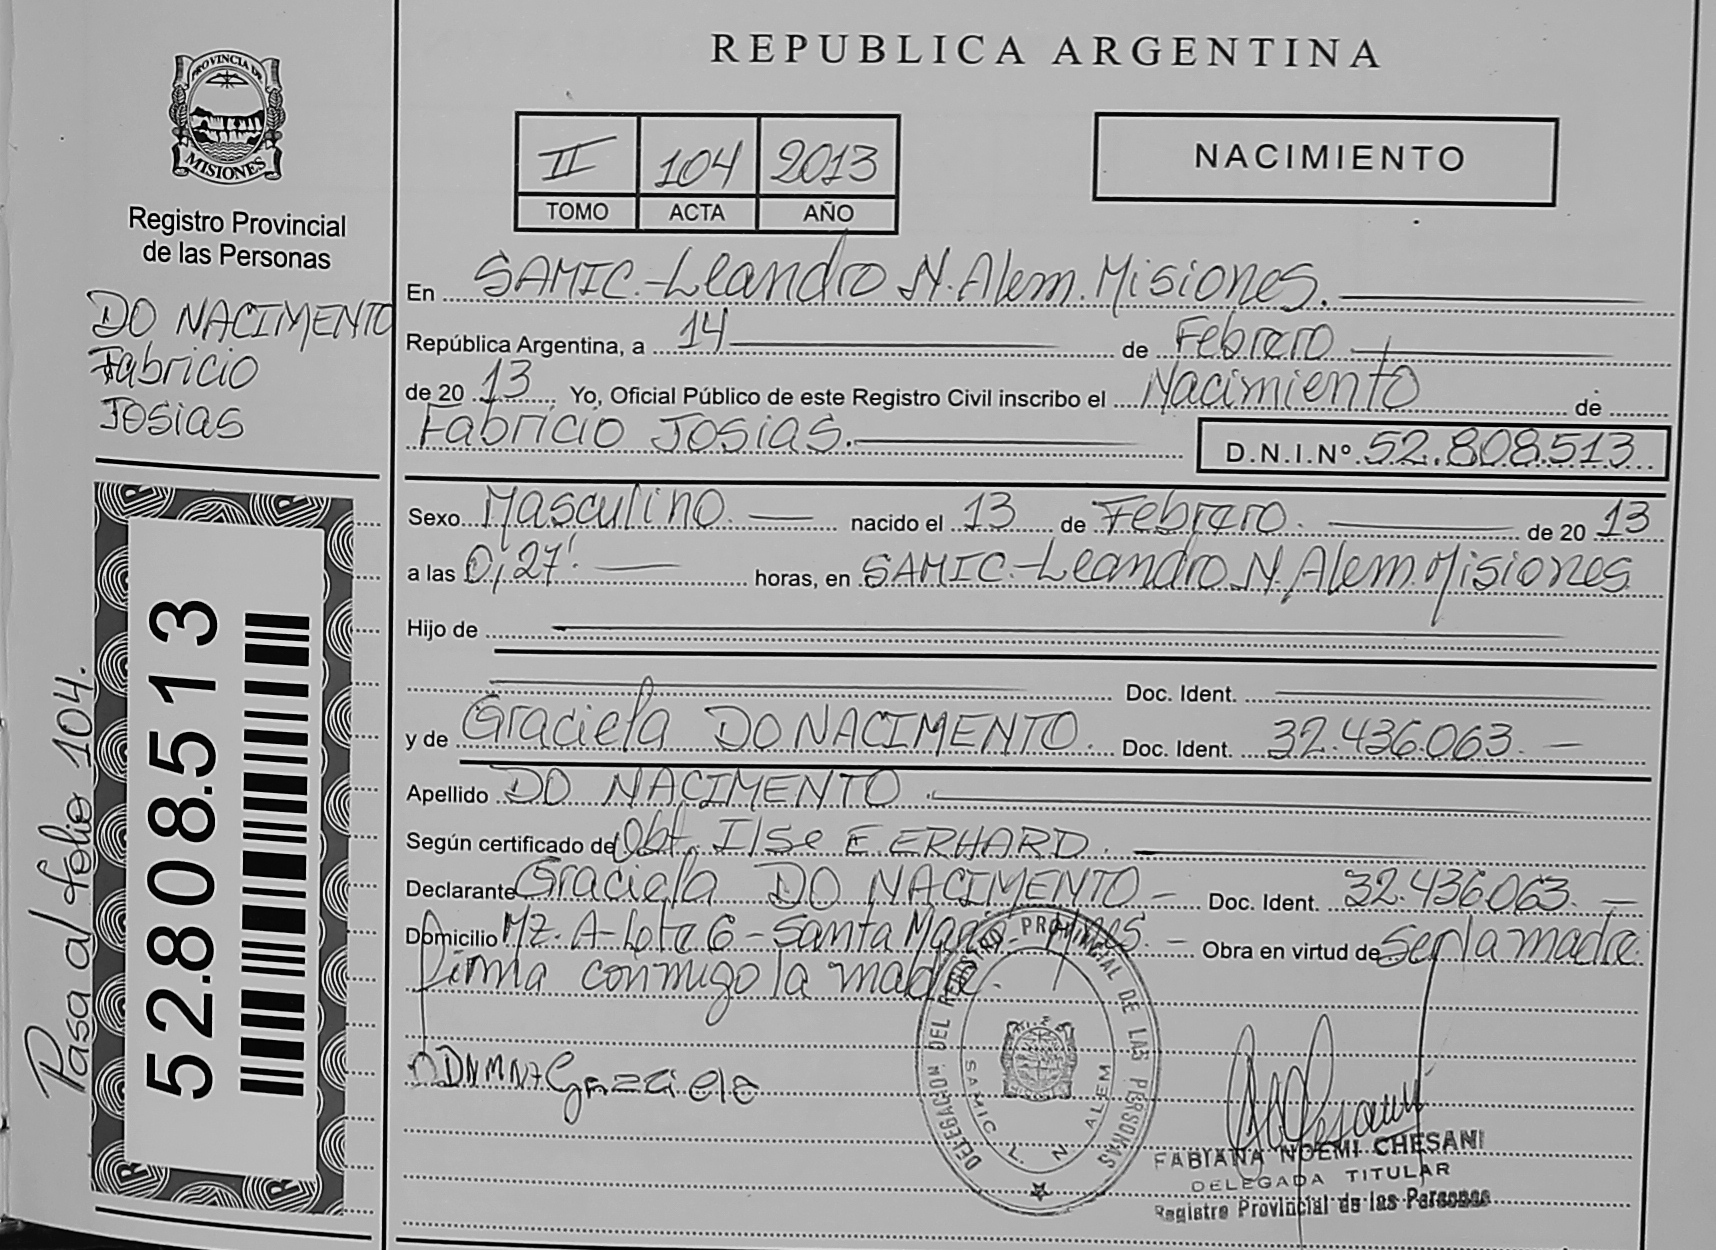 REPUBLICA ARGENTINA
PROVINCIA DE
MISIONES
Registro Provincial
de las Personas
DO NACIMENTO
Fabricio
Josias
52.808.513
Pasa al folio 104.
II 104 2013
TOMO ACTA AÑO
NACIMIENTO
En SAMIC.-Leandro N. Alem. Misiones.
República Argentina, a 14 de Febrero
de 2013 Yo, Oficial Público de este Registro Civil inscribo el Nacimiento de
Fabricio Josias. D.N.I.Nº 52.808.513
Sexo Masculino. nacido el 13 de Febrero. de 2013
a las 0,27' horas, en SAMIC.-Leandro N. Alem. Misiones
Hijo de
Doc. Ident.
y de Graciela DO NACIMENTO. Doc. Ident. 32.436.063.
Apellido DO NACIMENTO
Según certificado de Obt. Ilse E. ERHARD.
Declarante Graciela DO NACIMENTO - Doc. Ident. 32.436.063.
Domicilio MZ. A-Lote 6 - Santa - Obra en virtud de Ser la madre.
firma conmigo la madre.
DELEGACION DEL REGISTRO PROVINCIAL DE LAS PERSONAS
SAMIC L. N. ALEM
FABIANA NOEMI CHESANI
DELEGADA TITULAR
Registro Provincial de las Personas